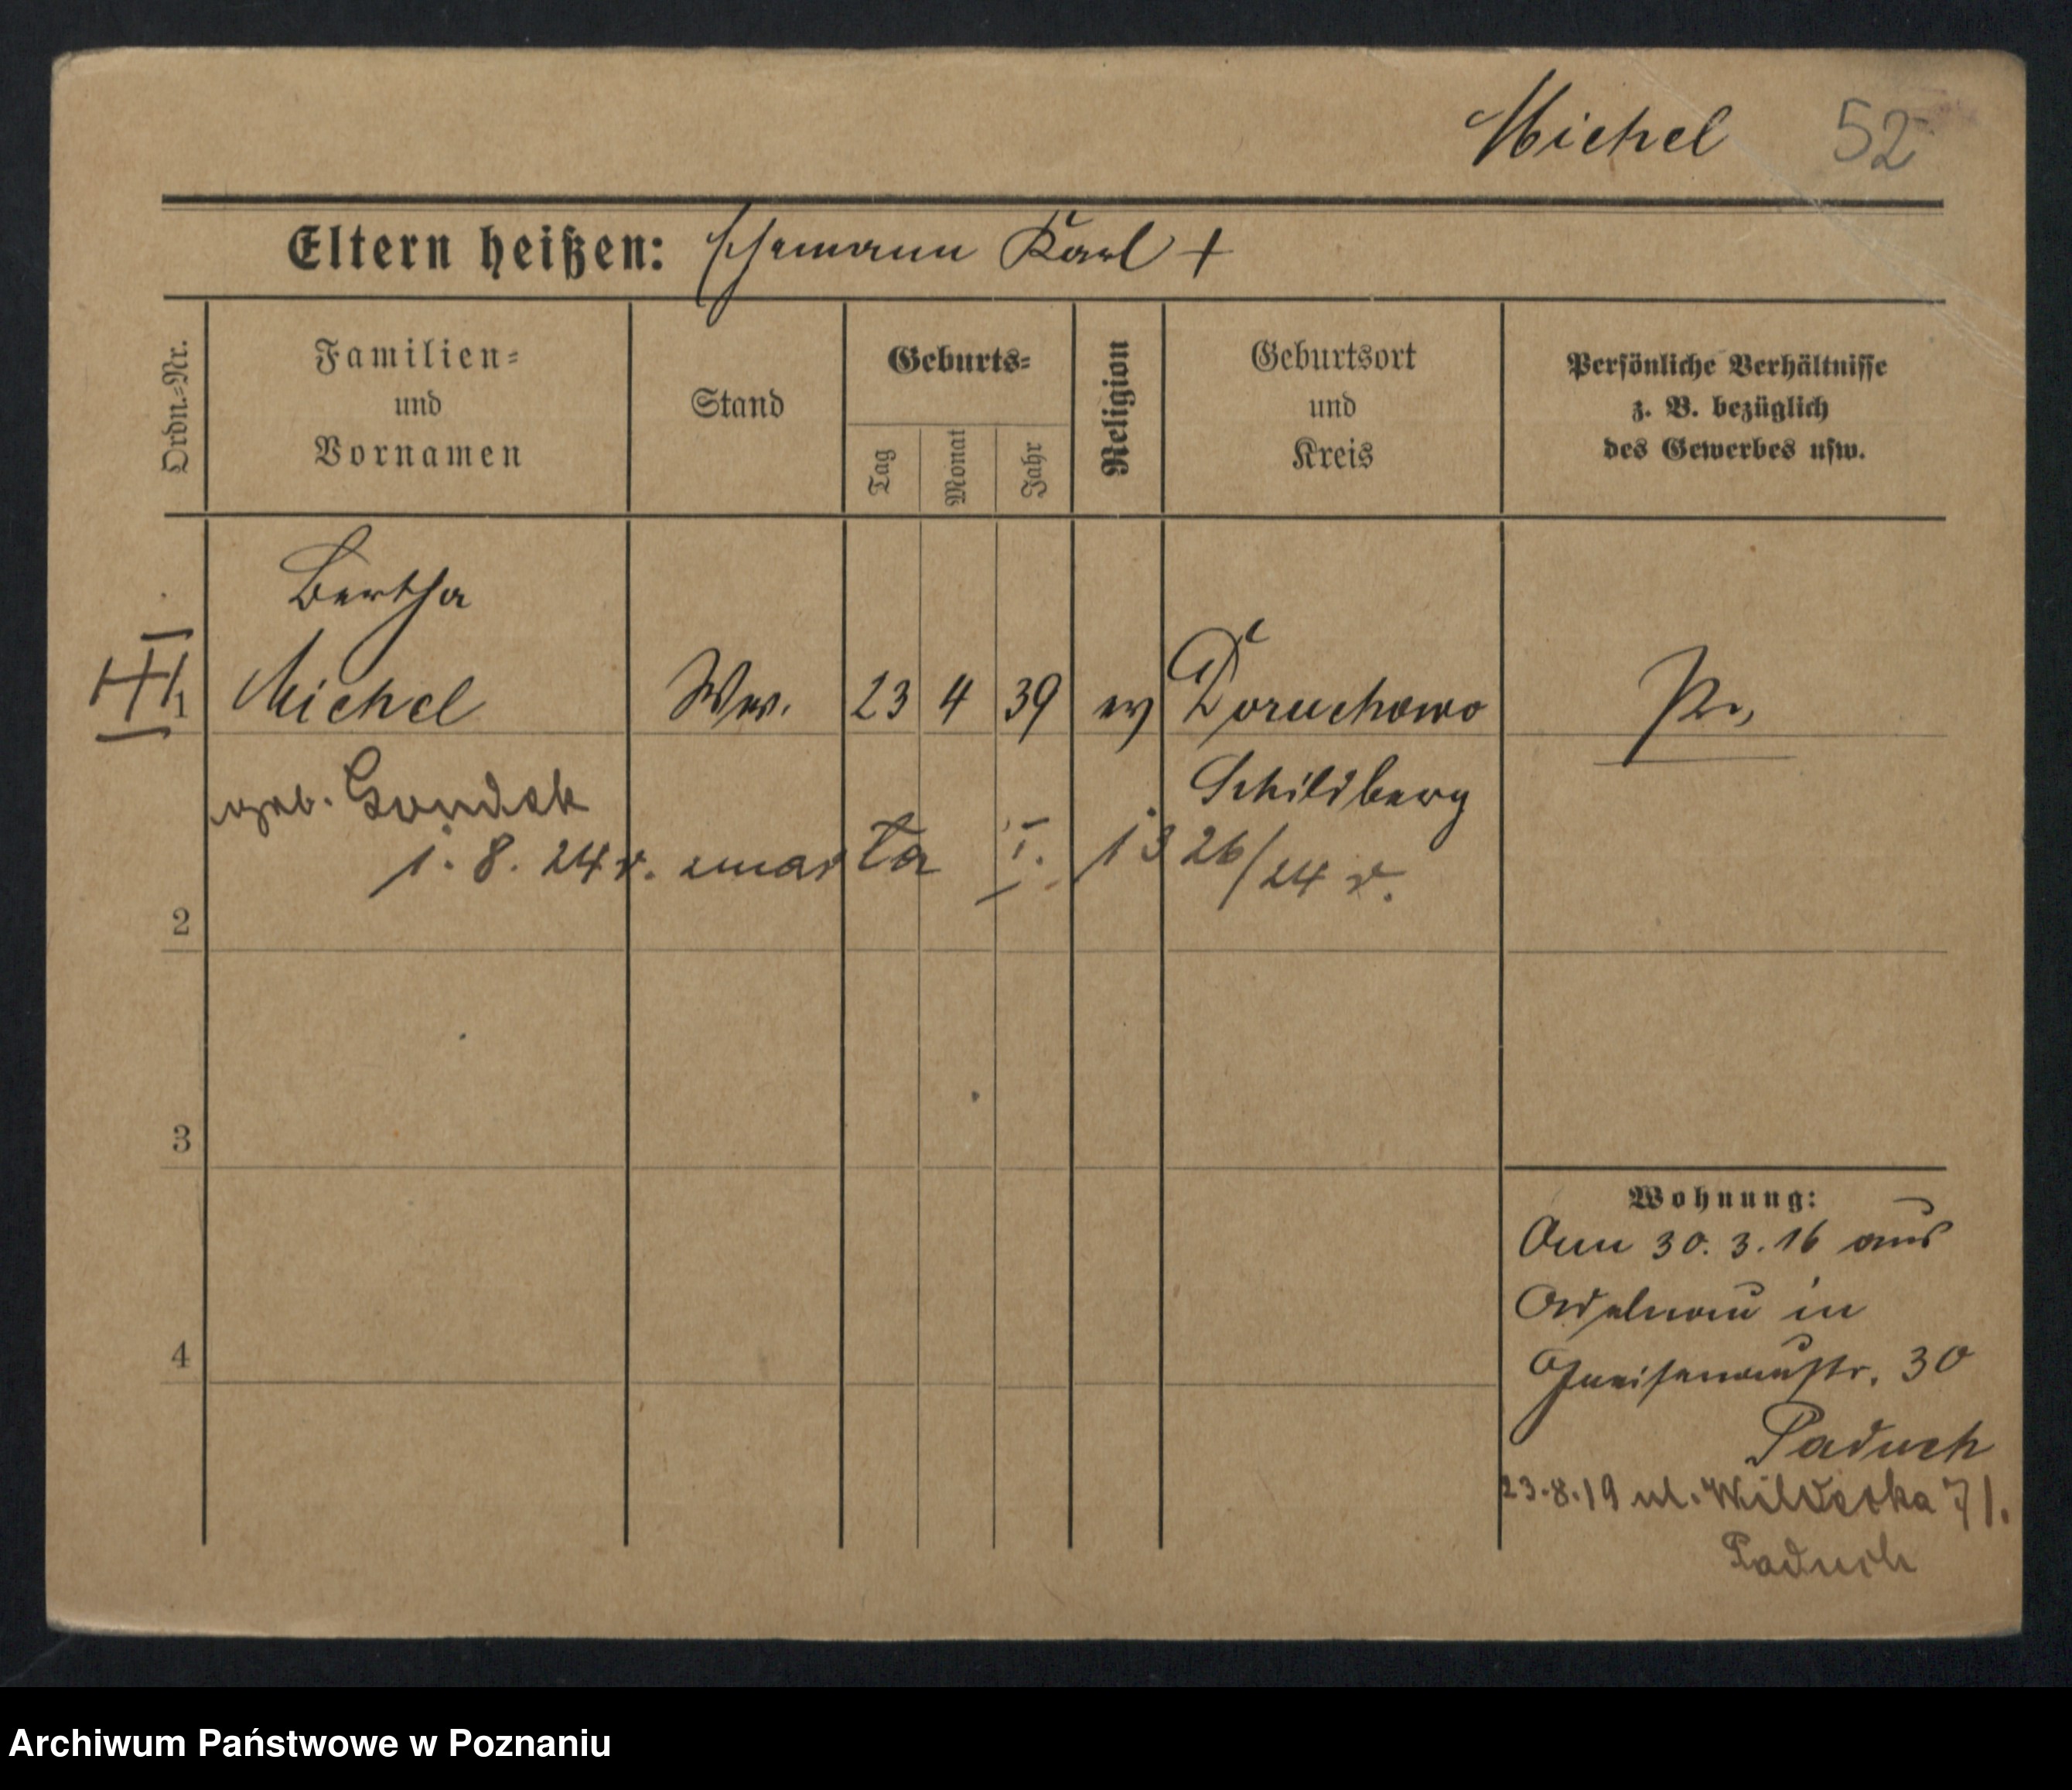 Michel 52
Eltern heißen: Ehemann Karl +
Ordn.=Nr.
Familien=
und
Vornamen
Stand
Geburts=
Tag
Monat
Jahr
Religion
Geburtsort
und
Kreis
Persönliche Verhältnisse
z. B. bezüglich
des Gewerbes usw.
Bertha
1 Michel Ww. 23 4 39 ev Doruchowo Pr.
geb. Gondek Schildberg
1. 8. 24 r. zmarła I. 1326/24 r.
2
3
4
Wohnung:
Am 30. 3. 16 aus
Adelnau in
Gneisenaustr. 30
Paduch
23.8.19 ul. Wildecka 71.
Paduch
Archiwum Państwowe w Poznaniu